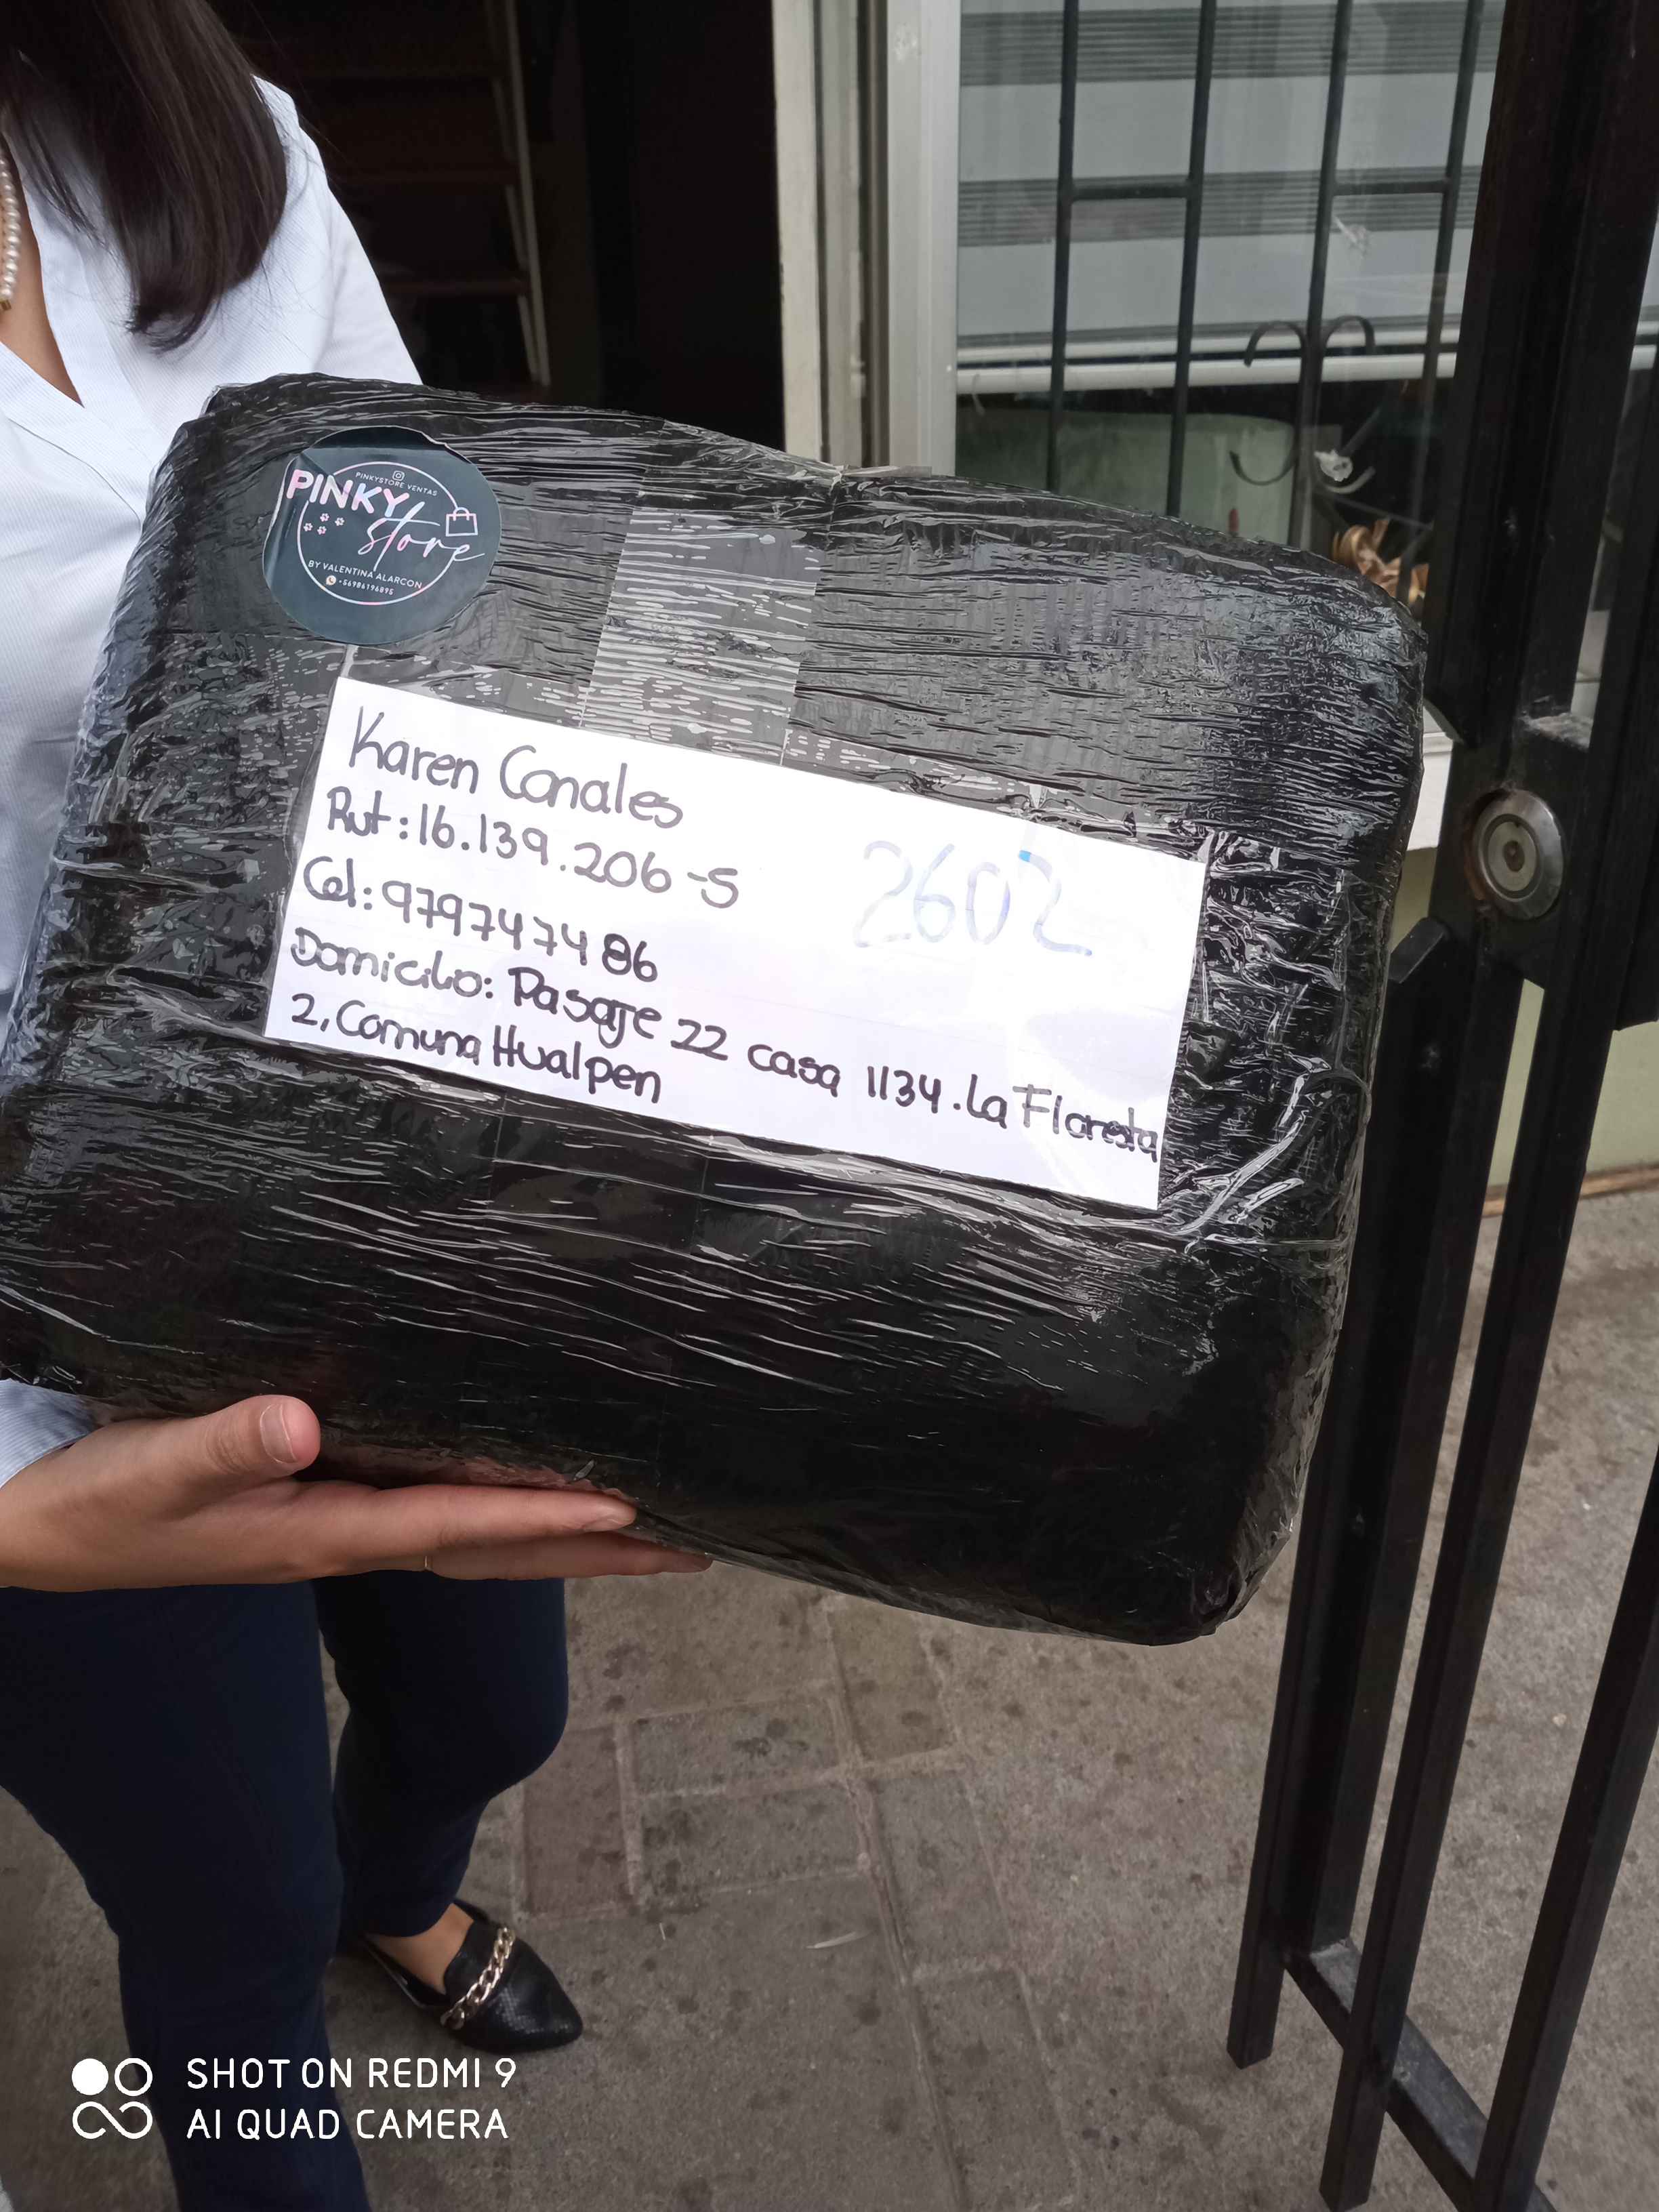 PINKYSTORE VENTAS
PINKY
store
BY VALENTINA ALARCON
+56986196895
Karen Canales
Rut: 16.139.206-5
2602
Cel: 979747486
Domicilio: Pasaje 22 casa 1134. La Floresta
2, Comuna Hualpen
SHOT ON REDMI 9
AI QUAD CAMERA